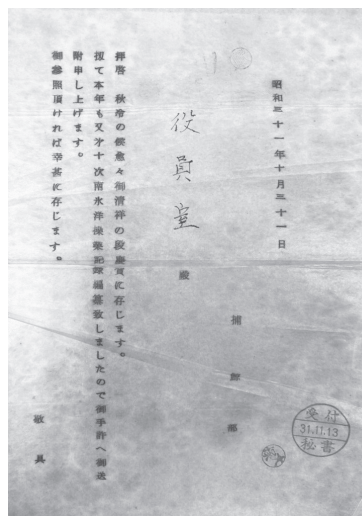 昭和三十一年十月三十一日
捕鯨部
役員室
殿
拝啓 秋冷の候愈々御清祥の段慶賀に存じます。
扨て本年も又才十次南氷洋操業記録編纂致しましたので御手許へ御送
附申し上げます。
御参照頂ければ幸甚に存じます。
敬具
受付
31.11.13
秘書